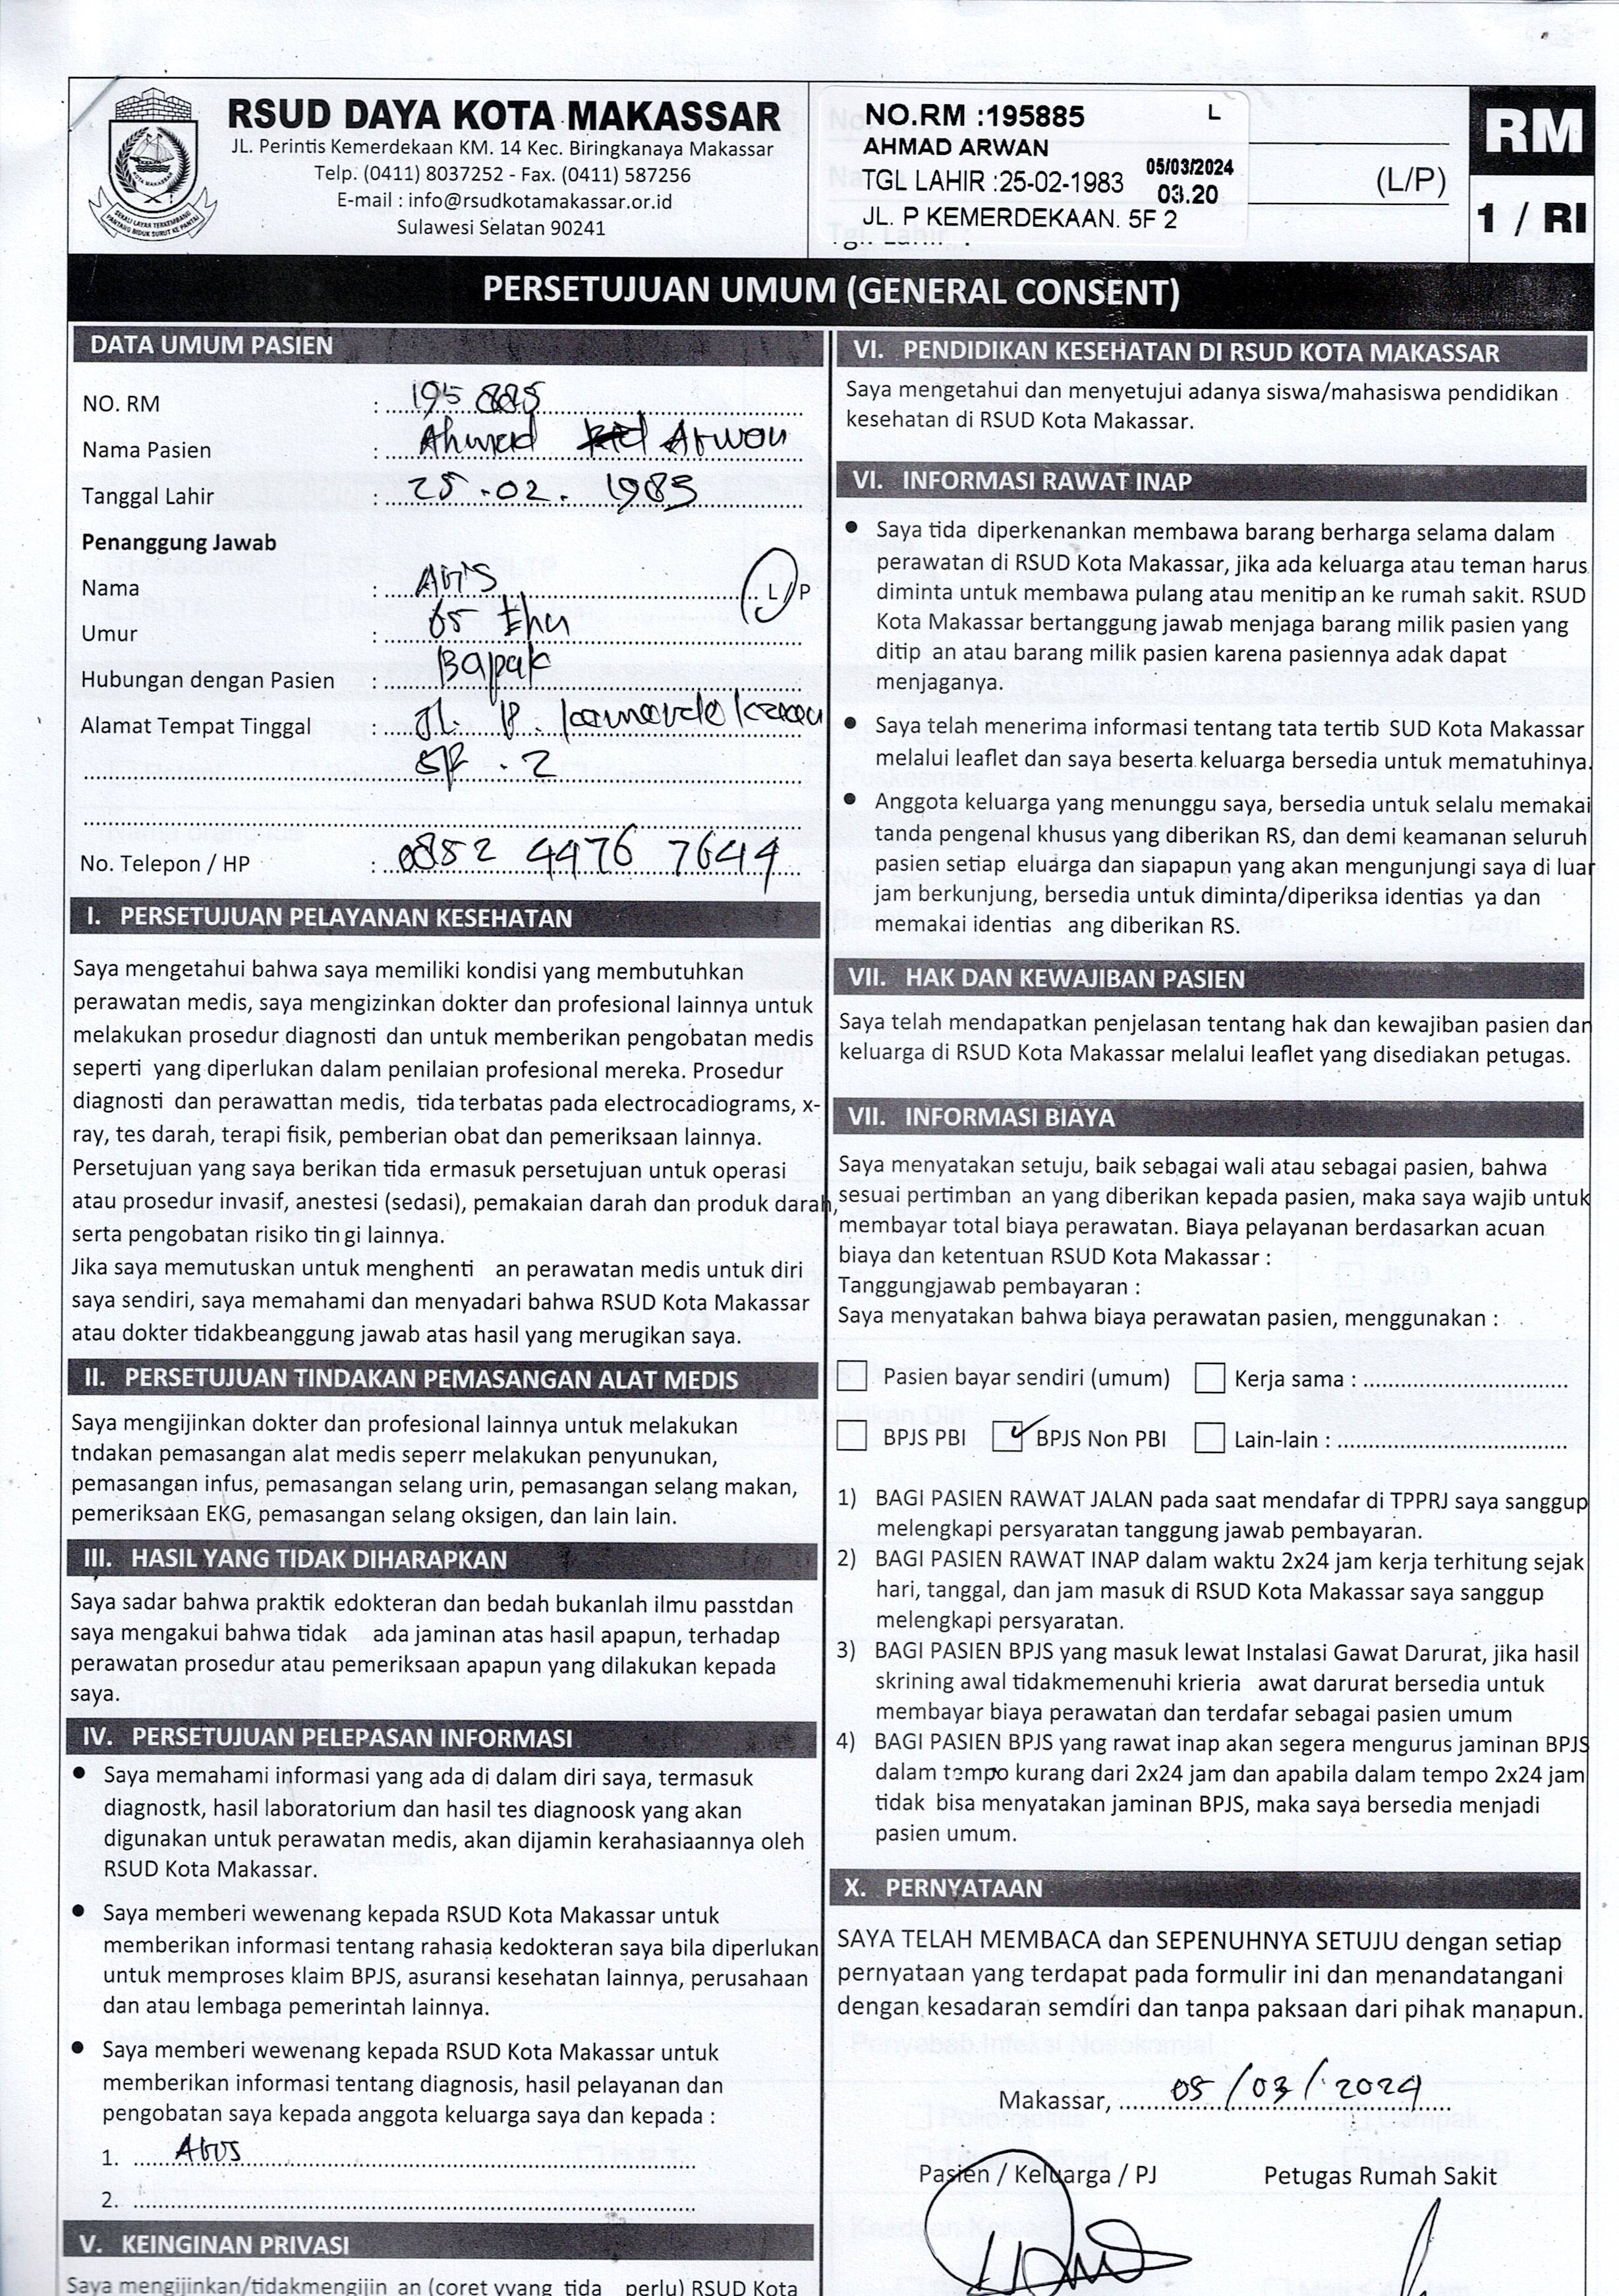 RSUD DAYA KOTA MAKASSAR
JL. Perintis Kemerdekaan KM. 14 Kec. Biringkanaya Makassar
Telp. (0411) 8037252 - Fax. (0411) 587256
E-mail : info@rsudkotamakassar.or.id
Sulawesi Selatan 90241
NO.RM :195885 L
AHMAD ARWAN
TGL LAHIR :25-02-1983
05/03/2024
03.20
JL. P KEMERDEKAAN. 5F 2
(L/P)
RM
1 / RI
PERSETUJUAN UMUM (GENERAL CONSENT)
DATA UMUM PASIEN
NO. RM : 195 885
Nama Pasien : Ahmad Arwan
Tanggal Lahir : 25 . 02 . 1983
Penanggung Jawab
Nama : L/P
Umur : 65 thn
Hubungan dengan Pasien : Bapak
Alamat Tempat Tinggal : Jl. P.
5F . 2
No. Telepon / HP : 0852 4476 7644
I. PERSETUJUAN PELAYANAN KESEHATAN
Saya mengetahui bahwa saya memiliki kondisi yang membutuhkan
perawatan medis, saya mengizinkan dokter dan profesional lainnya untuk
melakukan prosedur diagnosti dan untuk memberikan pengobatan medis
seperti yang diperlukan dalam penilaian profesional mereka. Prosedur
diagnosti dan perawattan medis, tida terbatas pada electrocadiograms, x-
ray, tes darah, terapi fisik, pemberian obat dan pemeriksaan lainnya.
Persetujuan yang saya berikan tida ermasuk persetujuan untuk operasi
atau prosedur invasif, anestesi (sedasi), pemakaian darah dan produk darah,
serta pengobatan risiko tin gi lainnya.
Jika saya memutuskan untuk menghenti an perawatan medis untuk diri
saya sendiri, saya memahami dan menyadari bahwa RSUD Kota Makassar
atau dokter tidakbeanggung jawab atas hasil yang merugikan saya.
II. PERSETUJUAN TINDAKAN PEMASANGAN ALAT MEDIS
Saya mengijinkan dokter dan profesional lainnya untuk melakukan
tndakan pemasangan alat medis seperr melakukan penyunukan,
pemasangan infus, pemasangan selang urin, pemasangan selang makan,
pemeriksaan EKG, pemasangan selang oksigen, dan lain lain.
III. HASIL YANG TIDAK DIHARAPKAN
Saya sadar bahwa praktik edokteran dan bedah bukanlah ilmu passtdan
saya mengakui bahwa tidak ada jaminan atas hasil apapun, terhadap
perawatan prosedur atau pemeriksaan apapun yang dilakukan kepada
saya.
IV. PERSETUJUAN PELEPASAN INFORMASI
● Saya memahami informasi yang ada di dalam diri saya, termasuk
diagnostk, hasil laboratorium dan hasil tes diagnoosk yang akan
digunakan untuk perawatan medis, akan dijamin kerahasiaannya oleh
RSUD Kota Makassar.
● Saya memberi wewenang kepada RSUD Kota Makassar untuk
memberikan informasi tentang rahasia kedokteran saya bila diperlukan
untuk memproses klaim BPJS, asuransi kesehatan lainnya, perusahaan
dan atau lembaga pemerintah lainnya.
● Saya memberi wewenang kepada RSUD Kota Makassar untuk
memberikan informasi tentang diagnosis, hasil pelayanan dan
pengobatan saya kepada anggota keluarga saya dan kepada :
1.
2.
V. KEINGINAN PRIVASI
Saya mengijinkan/tidakmengijin an (coret yyang tida perlu) RSUD Kota
VI. PENDIDIKAN KESEHATAN DI RSUD KOTA MAKASSAR
Saya mengetahui dan menyetujui adanya siswa/mahasiswa pendidikan
kesehatan di RSUD Kota Makassar.
VI. INFORMASI RAWAT INAP
● Saya tida diperkenankan membawa barang berharga selama dalam
perawatan di RSUD Kota Makassar, jika ada keluarga atau teman harus
diminta untuk membawa pulang atau menitip an ke rumah sakit. RSUD
Kota Makassar bertanggung jawab menjaga barang milik pasien yang
ditip an atau barang milik pasien karena pasiennya adak dapat
menjaganya.
● Saya telah menerima informasi tentang tata tertib SUD Kota Makassar
melalui leaflet dan saya beserta keluarga bersedia untuk mematuhinya.
● Anggota keluarga yang menunggu saya, bersedia untuk selalu memakai
tanda pengenal khusus yang diberikan RS, dan demi keamanan seluruh
pasien setiap eluarga dan siapapun yang akan mengunjungi saya di luar
jam berkunjung, bersedia untuk diminta/diperiksa identias ya dan
memakai identias ang diberikan RS.
VII. HAK DAN KEWAJIBAN PASIEN
Saya telah mendapatkan penjelasan tentang hak dan kewajiban pasien dan
keluarga di RSUD Kota Makassar melalui leaflet yang disediakan petugas.
VII. INFORMASI BIAYA
Saya menyatakan setuju, baik sebagai wali atau sebagai pasien, bahwa
sesuai pertimban an yang diberikan kepada pasien, maka saya wajib untuk
membayar total biaya perawatan. Biaya pelayanan berdasarkan acuan
biaya dan ketentuan RSUD Kota Makassar :
Tanggungjawab pembayaran :
Saya menyatakan bahwa biaya perawatan pasien, menggunakan :
Pasien bayar sendiri (umum) Kerja sama :
BPJS PBI ✓ BPJS Non PBI Lain-lain :
1) BAGI PASIEN RAWAT JALAN pada saat mendafar di TPPRJ saya sanggup
melengkapi persyaratan tanggung jawab pembayaran.
2) BAGI PASIEN RAWAT INAP dalam waktu 2x24 jam kerja terhitung sejak
hari, tanggal, dan jam masuk di RSUD Kota Makassar saya sanggup
melengkapi persyaratan.
3) BAGI PASIEN BPJS yang masuk lewat Instalasi Gawat Darurat, jika hasil
skrining awal tidakmemenuhi krieria awat darurat bersedia untuk
membayar biaya perawatan dan terdafar sebagai pasien umum
4) BAGI PASIEN BPJS yang rawat inap akan segera mengurus jaminan BPJS
dalam tempo kurang dari 2x24 jam dan apabila dalam tempo 2x24 jam
tidak bisa menyatakan jaminan BPJS, maka saya bersedia menjadi
pasien umum.
X. PERNYATAAN
SAYA TELAH MEMBACA dan SEPENUHNYA SETUJU dengan setiap
pernyataan yang terdapat pada formulir ini dan menandatangani
dengan kesadaran semdiri dan tanpa paksaan dari pihak manapun.
Makassar, 05/03/2024
Pasien / Keluarga / PJ Petugas Rumah Sakit